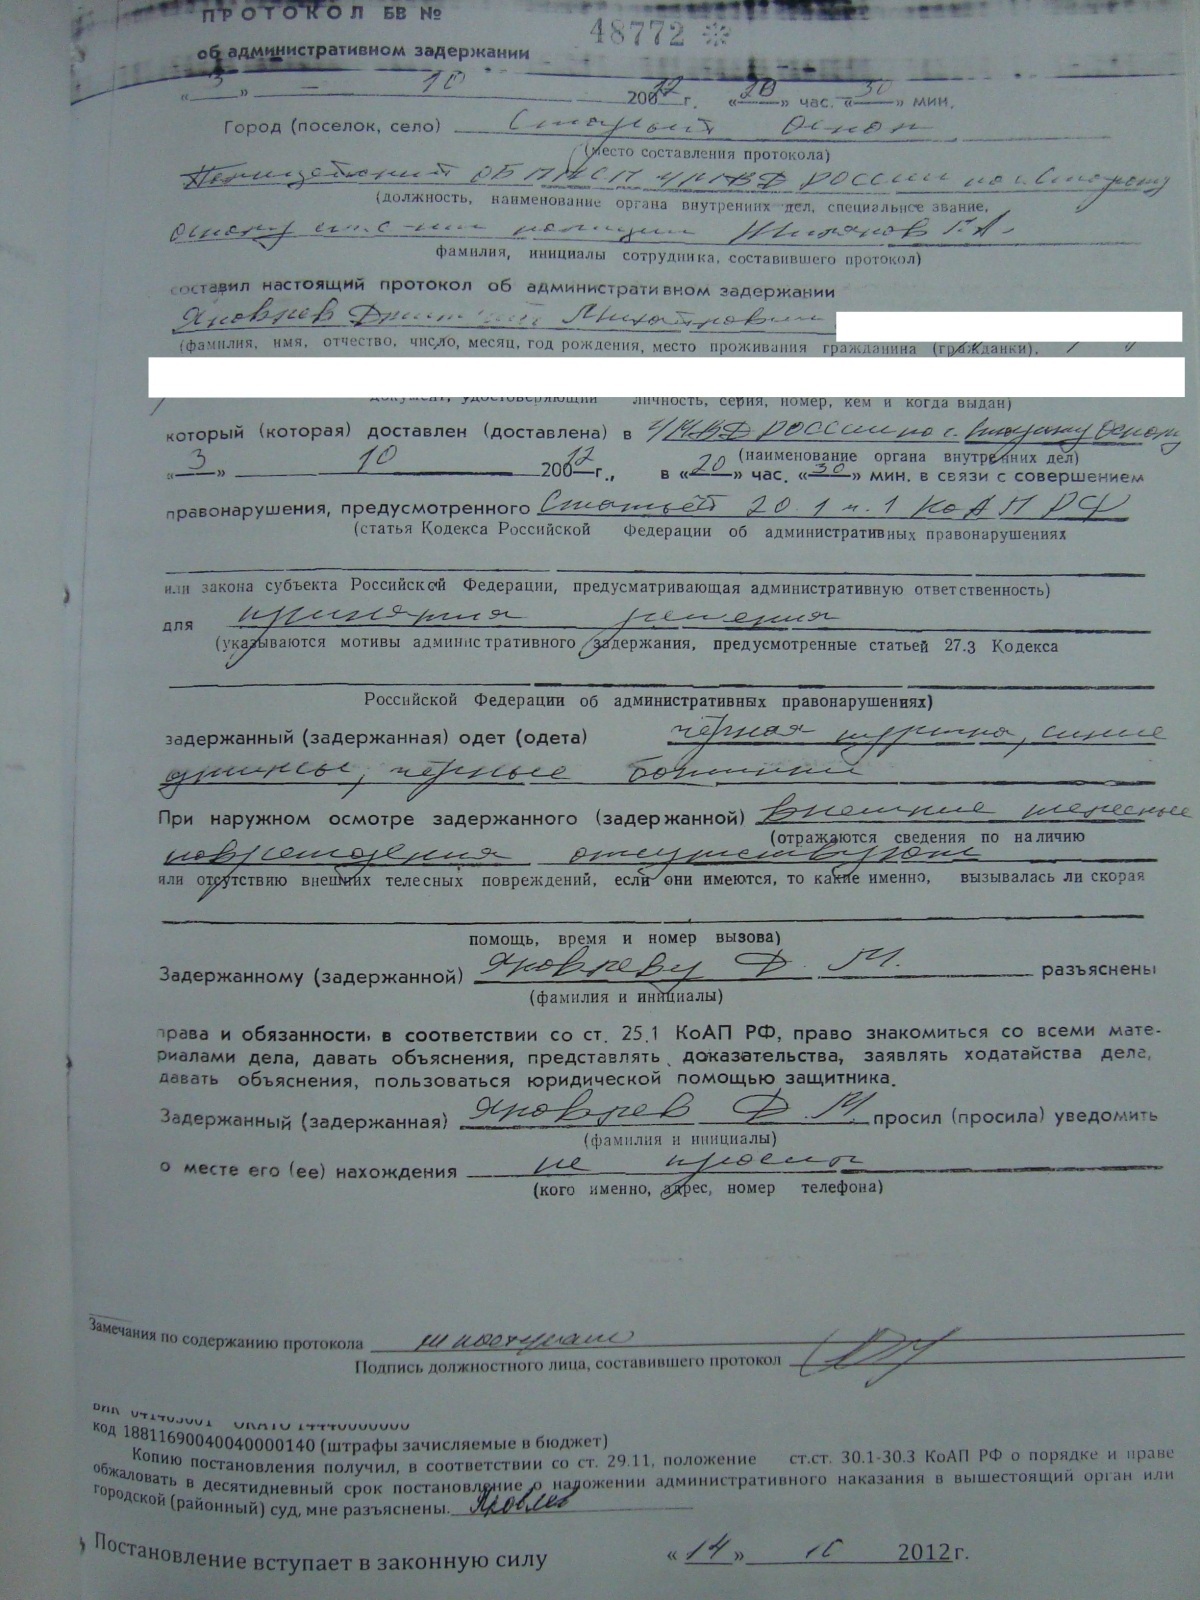 ПРОТОКОЛ БВ № 48772
об административном задержании
« 3 » — 10 2012 г. « 20 » час. « 30 » мин.
Город (поселок, село) Старый Оскол
(место составления протокола)
Полицейский ОБ ППСП УМВД РОССИИ по г. Старому
(должность, наименование органа внутренних дел, специальное звание,
Осколу полиции Г.А.
фамилия, инициалы сотрудника, составившего протокол)
составил настоящий протокол об административном задержании
Яковлев Дмитрий Михайлович
(фамилия, имя, отчество, число, месяц, год рождения, место проживания гражданина (гражданки),
документ, удостоверяющий личность, серия, номер, кем и когда выдан)
который (которая) доставлен (доставлена) в УМВД РОССИИ по г. Старому Осколу
(наименование органа внутренних дел)
« 3 » 10 2012 г., в « 20 » час. « 30 » мин. в связи с совершением
правонарушения, предусмотренного Статьёй 20.1 ч.1 КоАП РФ
(статья Кодекса Российской Федерации об административных правонарушениях
или закона субъекта Российской Федерации, предусматривающая административную ответственность)
для принятия решения
(указываются мотивы административного задержания, предусмотренные статьей 27.3 Кодекса
Российской Федерации об административных правонарушениях)
задержанный (задержанная) одет (одета) чёрная куртка, синие
джинсы, чёрные ботинки
При наружном осмотре задержанного (задержанной) внешние телесные
(отражаются сведения по наличию
повреждения отсутствуют
или отсутствию внешних телесных повреждений, если они имеются, то какие именно, вызывалась ли скорая
помощь, время и номер вызова)
Задержанному (задержанной) Яковлеву Д. М. разъяснены
(фамилия и инициалы)
права и обязанности, в соответствии со ст. 25.1 КоАП РФ, право знакомиться со всеми мате-
риалами дела, давать объяснения, представлять доказательства, заявлять ходатайства дела,
давать объяснения, пользоваться юридической помощью защитника.
Задержанный (задержанная) Яковлев Д. М. просил (просила) уведомить
(фамилия и инициалы)
о месте его (ее) нахождения не просил
(кого именно, адрес, номер телефона)
Замечания по содержанию протокола не поступило
Подпись должностного лица, составившего протокол
код 18811690040040000140 (штрафы зачисляемые в бюджет)
Копию постановления получил, в соответствии со ст. 29.11, положение ст.ст. 30.1-30.3 КоАП РФ о порядке и праве
обжаловать в десятидневный срок постановление о наложении административного наказания в вышестоящий орган или
городской (районный) суд, мне разъяснены. Яковлев
Постановление вступает в законную силу « 14 » 10 2012 г.